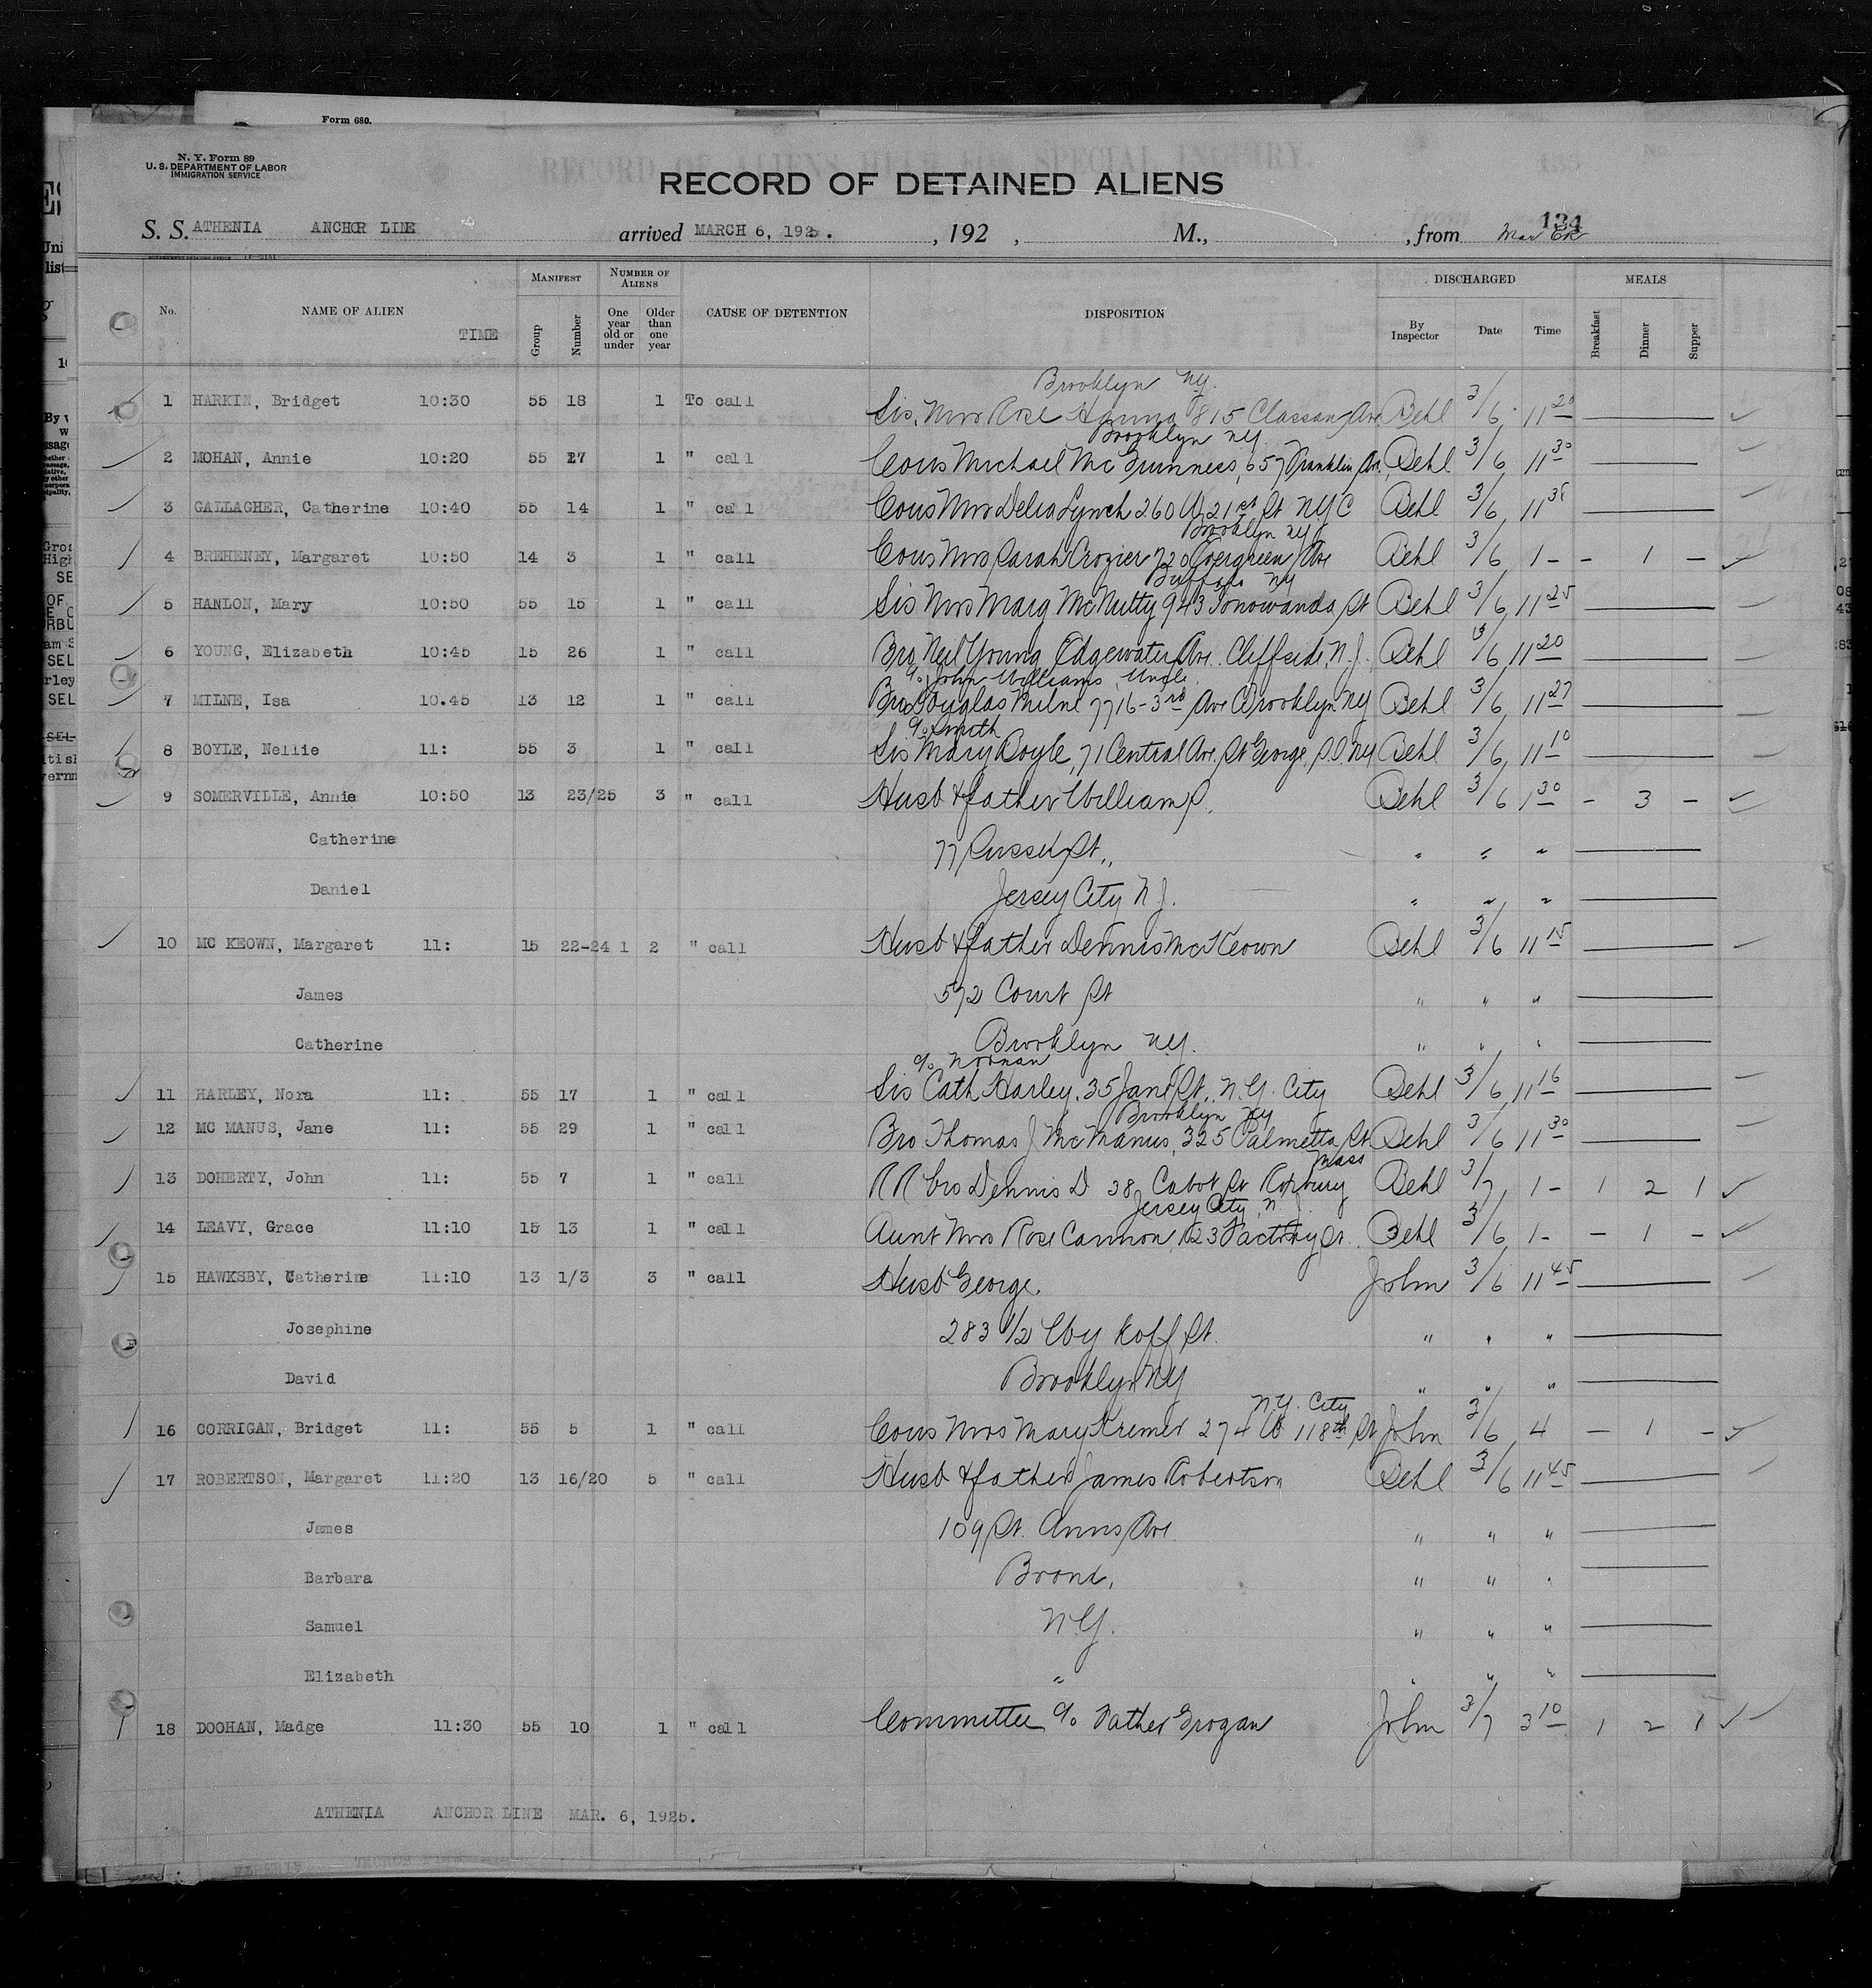 Form 680.
N. Y. Form 89
U. S. DEPARTMENT OF LABOR
IMMIGRATION SERVICE
RECORD OF DETAINED ALIENS
134
S. S. ATHENIA ANCHOR LINE arrived MARCH 6, 1925. , 192 , M., , from
No. NAME OF ALIEN TIME MANIFEST Group Number NUMBER OF ALIENS One year old or under Older than one year CAUSE OF DETENTION DISPOSITION DISCHARGED By Inspector Date Time MEALS Breakfast Dinner Supper
Brooklyn NY.
1 HARKIN, Bridget 10:30 55 18 1 To call Sis. Mrs Rose Hanna 815 Classan Ave Behl 3/6 11 20
Brooklyn NY.
2 MOHAN, Annie 10:20 55 27 1 " call Cous Michael McGuinness, 657 Franklin Av. Behl 3/6 11 30
3 GALLAGHER, Catherine 10:40 55 14 1 " call Cous Mrs Delia Lynch 260 W 21st St NYC Behl 3/6 11 38
Brooklyn NY
4 BREHENEY, Margaret 10:50 14 3 1 " call Cous Mrs Sarah Crozier 720 Evergreen Ave Behl 3/6 1 - - 1 -
Buffalo NY
5 HANLON, Mary 10:50 55 15 1 " call Sis Mrs Marg McNulty 943 Tonowanda St Behl 3/6 11 25
6 YOUNG, Elizabeth 10:45 15 26 1 " call Bro Neil Young Edgewater Ave. Cliffside, N.J. Behl 3/6 11 20
c/o John Williams, Uncle
7 MILNE, Isa 10.45 13 12 1 " call Bro Douglas Milne 7716-3rd Ave Brooklyn NY Behl 3/6 11 27
c/o Smith
8 BOYLE, Nellie 11: 55 3 1 " call Sis Mary Boyle, 71 Central Ave. St George, S.I. NY Behl 3/6 11 10
9 SOMERVILLE, Annie 10:50 13 23/25 3 " call Husb & father William S. Behl 3/6 1 30 - 3 -
Catherine 77 Russel St., " " "
Daniel Jersey City N.J. " " "
10 MC KEOWN, Margaret 11: 15 22-24 1 2 " call Husb & father Dennis McKeown Behl 3/6 11 15
James 572 Court St " " "
Catherine Brooklyn N.Y. " " "
c/o Noonan
11 HARLEY, Nora 11: 55 17 1 " call Sis Cath Harley. 35 Jane St., N.Y. City Behl 3/6 11 16
Brooklyn NY
12 MC MANUS, Jane 11: 55 29 1 " call Bro Thomas J McManus, 325 Palmetta St Behl 3/6 11 30
Mass
13 DOHERTY, John 11: 55 7 1 " call RR bro Dennis D 38 Cabot St Roxbury Behl 3/7 1 - 1 2 1
Jersey City N
14 LEAVY, Grace 11:10 15 13 1 " call Aunt Mrs Rose Cannon 123 Factory St. Behl 3/6 1- - 1 -
15 HAWKSBY, Catherine 11:10 13 1/3 3 " call Husb George. John 3/6 11 45
Josephine 283 1/2 Wyckoff St. " " "
David Brooklyn NY " " "
N.Y. City
16 CORRIGAN, Bridget 11: 55 5 1 " call Cous Mrs Mary Kremer 274 W 118th St John 3/6 4 - 1 -
17 ROBERTSON, Margaret 11:20 13 16/20 5 " call Husb & father James Robertson Behl 3/6 11 45
James 109 St. Anns Ave " " "
Barbara Bronx, " " "
Samuel N.Y. " " "
Elizabeth " " " "
18 DOOHAN, Madge 11:30 55 10 1 " call Committee c/o Father Grogan John 3/7 3 10 1 2 1
ATHENIA ANCHOR LINE MAR. 6, 1925.